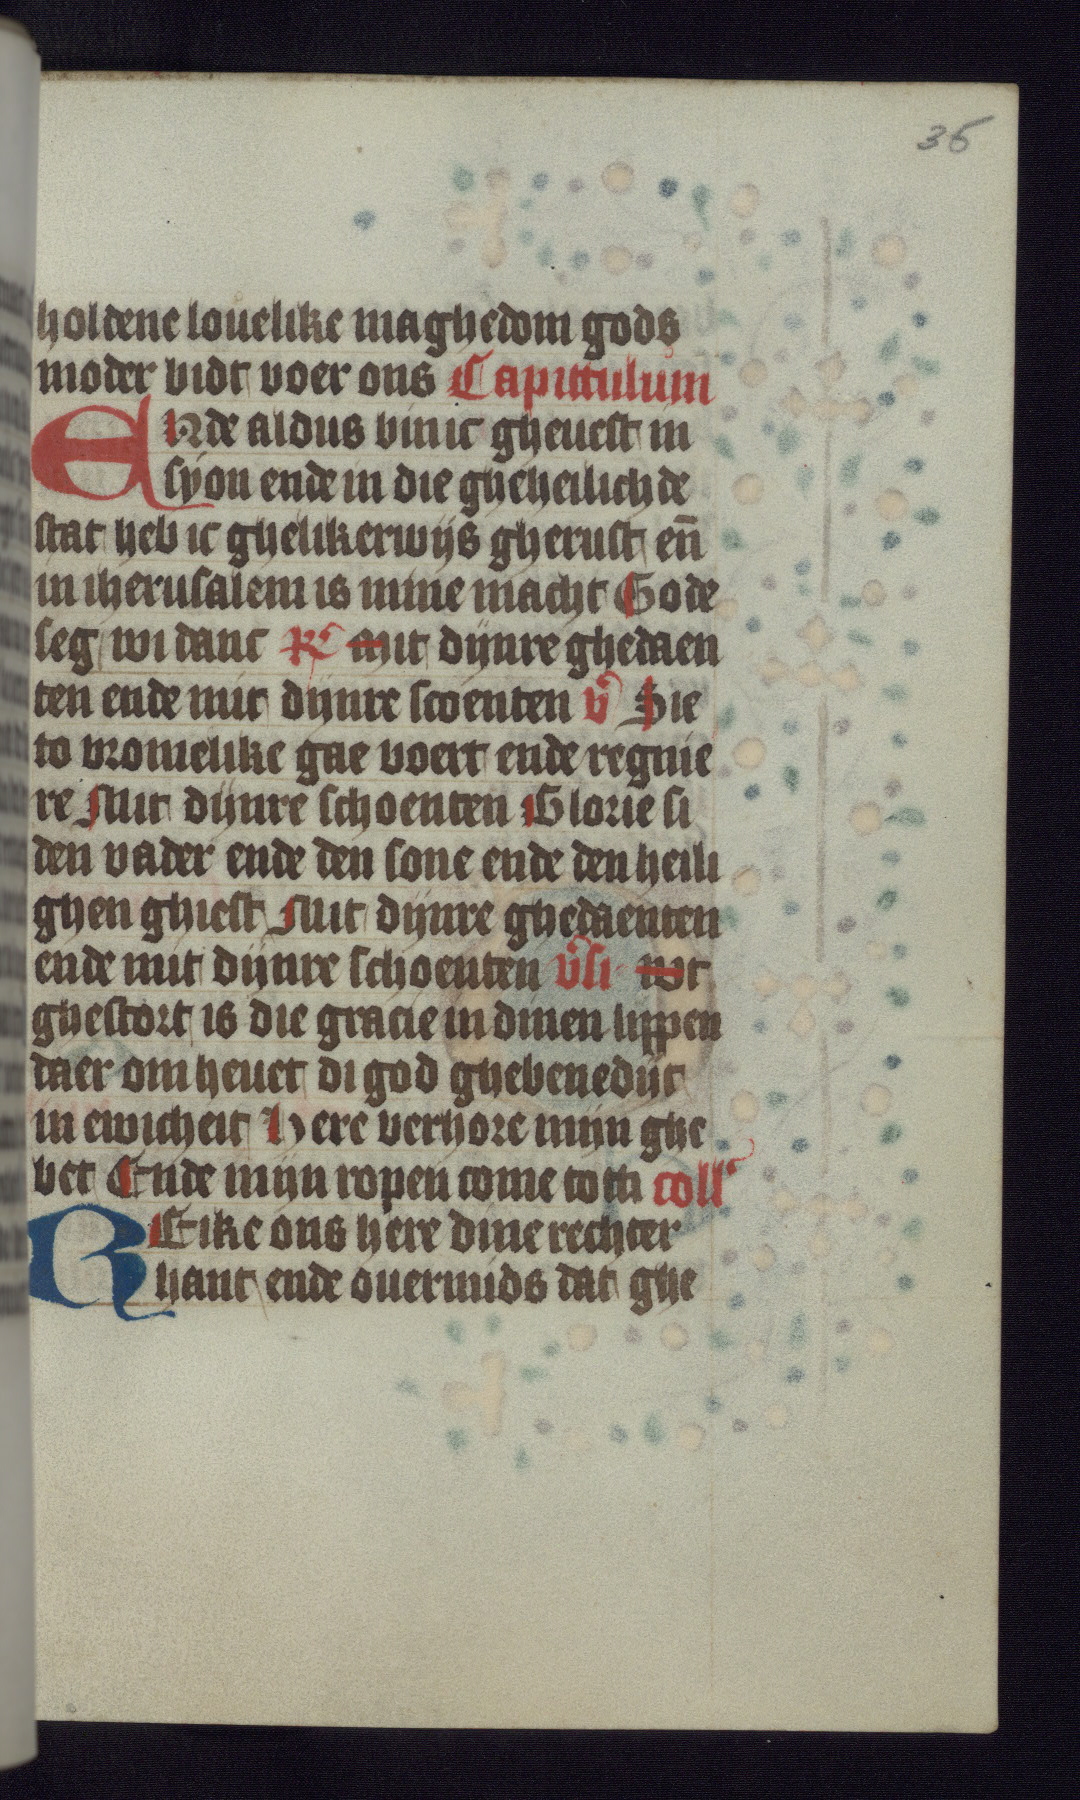 36
holdene louelike maghedom gods
moder bidt voer ons Capittulum
Ende aldus bin ic gheuest in
syon ende in die gheheilichde
stat heb ic ghelikerwijs gherust en̄
in iherusalem is mine macht Gode
seg wi danc R mit dijnre ghedaen
ten ende mit dijnre scoenten v̄ Sie
to vromelike gae voert ende regnie
re Mit dijnre schoenten Glorie si
den vader ende den sone ende den heili
ghen ghiest Mit dijnre ghedaenten
ende mit dijnre schoenten v̄si wt
ghestort is die gracie in dinen lippen
daer om heuet di god ghebenedijt
in ewicheit Here verhore mijn ghe
bet Ende mijn ropen come to di coll'
REike ons here dine rechter
hant ende ouermids dat ghe